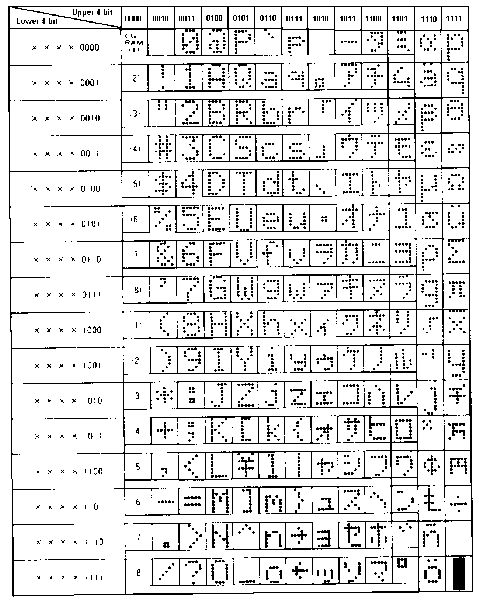 Upper 4 bit 0000 0010 0011 0100 0101 0110 0111 1010 1011 1100 1101 1110 1111
Lower 4 bit
× × × × 0000 CG RAM (1) 0 @ P ` p ー タ ミ α p
× × × × 0001 (2) ! 1 A Q a q 。 ア チ ム ä q
× × × × 0010 (3) " 2 B R b r 「 イ ツ メ β θ
× × × × 0011 (4) # 3 C S c s 」 ウ テ モ ε ∞
× × × × 0100 (5) $ 4 D T d t 、 エ ト ヤ μ Ω
× × × × 0101 (6) % 5 E U e u ・ オ ナ ユ σ ü
× × × × 0110 (7) & 6 F V f v ヲ カ ニ ヨ ρ Σ
× × × × 0111 (8) ' 7 G W g w ァ キ ヌ ラ g π
× × × × 1000 (1) ( 8 H X h x ィ ク ネ リ √ x̄
× × × × 1001 (2) ) 9 I Y i y ゥ ケ ノ ル ⁻¹ y
× × × × 1010 (3) * : J Z j z ェ コ ハ レ j 千
× × × × 1011 (4) + ; K [ k { ォ サ ヒ ロ ˣ 万
× × × × 1100 (5) , < L ¥ l | ャ シ フ ワ ¢ 円
× × × × 1101 (6) - = M ] m } ュ ス ヘ ン Ł ÷
× × × × 1110 (7) . > N ^ n → ョ セ ホ ゛ ñ
× × × × 1111 (8) / ? O _ o ← ッ ソ マ ゜ ö █